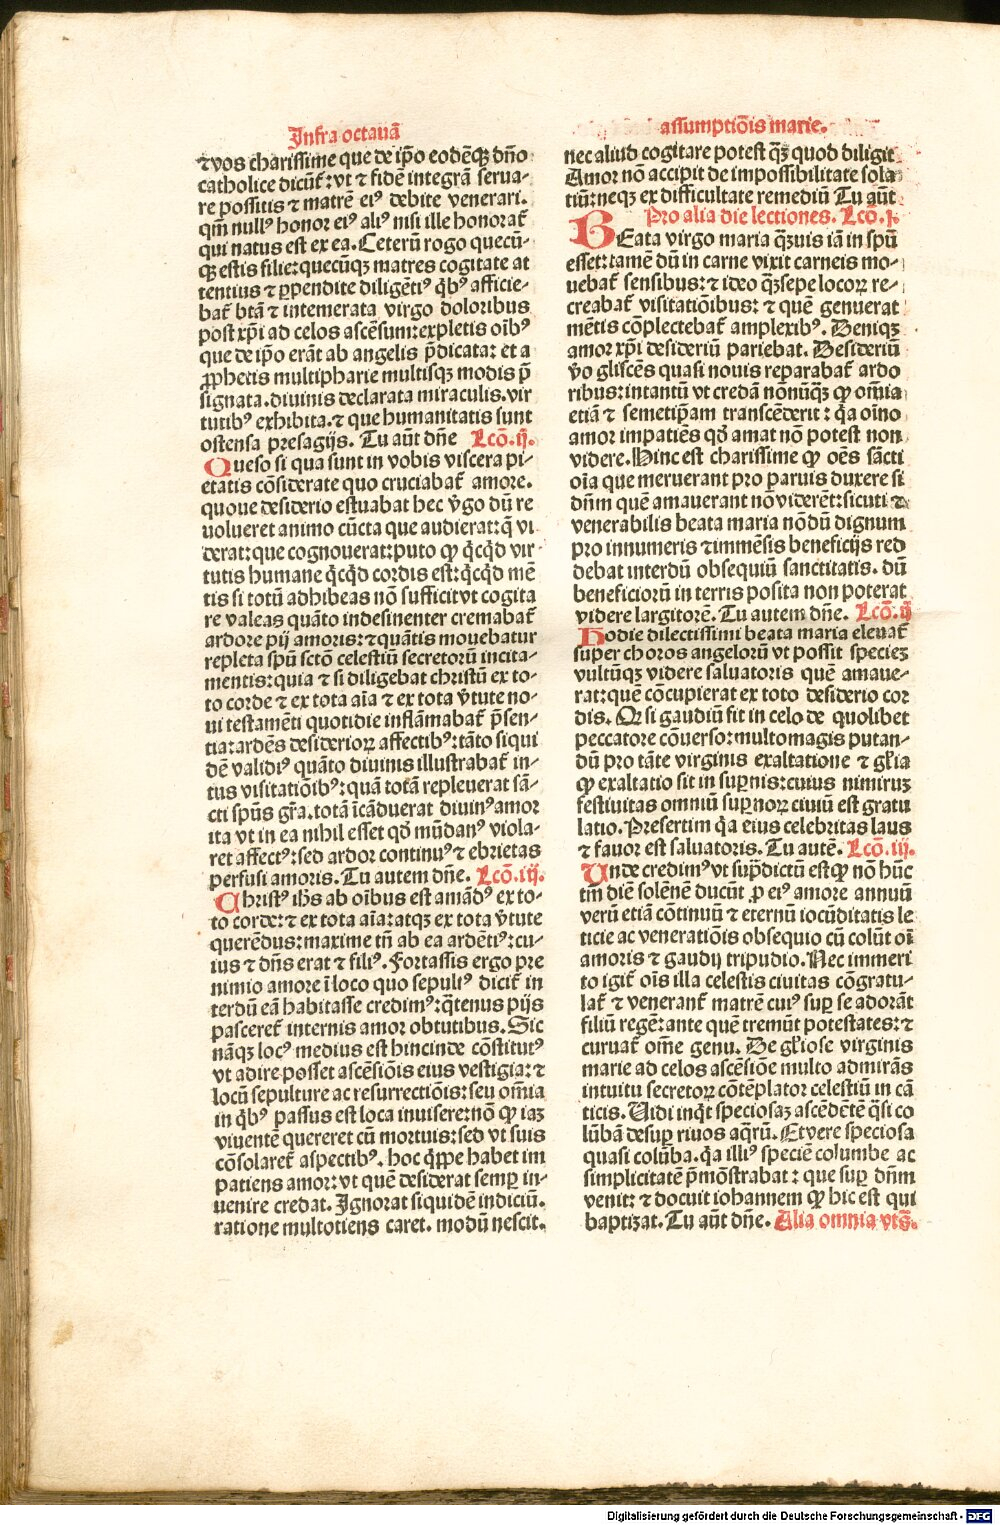 Infra octauā
⁊ vos charissime que de ip̄o eodēq̄ʒ dn̄o
catholice dicūt̄: vt ⁊ fidē integrā serua-
re possitis ⁊ matrē eiꝰ debite venerari.
qm̄ nullꝰ honor eiꝰ aliꝰ nisi ille honorat̄
qui natus est ex ea. Ceterū rogo quecū-
q̄ʒ estis filie: quecūqʒ matres cogitate at
tentius ⁊ ꝑpendite diligētiꝰ q̇bꝰ afficie-
bat̄ btā ⁊ intemerata virgo doloribus
post xp̄i ad celos ascēsum: expletis oībꝰ
que de ip̄o erāt ab angelis p̄dicata: et a
ꝓphetis multipharie multisqʒ modis p̄
signata. diuinis declarata miraculis. vir
tutibꝰ exhibita. ⁊ que humanitatis sunt
ostensa presagijs. Tu aūt dn̄e Lcō. ij.
Queso si qua sunt in vobis viscera pi-
etatis cōsiderate quo cruciabat̄ amore.
quoue desiderio estuabat hec v̄go dū re
uolueret animo cūcta que audierat: q̄ vi
derat: que cognouerat: puto ꝙ q̇cq̇d vir
tutis humane q̇cq̇d cordis est: q̇cq̇d mē
tis si totū adhibeas nō sufficit vt cogita
re valeas quāto indesinenter cremabat̄
ardore pij amoris: ⁊ quātis mouebatur
repleta spū sctō celestiū secretorū incita-
mentis: quia ⁊ si diligebat christū ex to-
to corde ⁊ ex tota aīa ⁊ ex tota v̄tute no-
ui testamēti quotidie inflāmabat̄ p̄sen-
tia: ardēs desiderioꝝ affectibꝰ: tāto siqui
dē validiꝰ quāto diuinis illustrabat̄ in-
tus visitatiōibꝰ: quā totā repleuerat sā-
cti spūs gr̄a. totā īcāduerat diuinꝰ amor
ita vt in ea nihil esset qd̓ mūdanꝰ viola-
ret affectꝰ: sed ardor continuꝰ ⁊ ebrietas
perfusi amoris. Tu autem dn̄e. Lcō. iij.
Christꝰ ih̄s ab oībus est amādꝰ ex to-
to corde: ⁊ ex tota aīa: atqʒ ex tota v̄tute
querēdus: maxime tn̄ ab ea ardētiꝰ: cu-
ius ⁊ dn̄s erat ⁊ filiꝰ. Fortassis ergo pre
nimio amore ī loco quo sepulꝰ dicit̄ in
terdū eā habitasse credimꝰ: q̄tenus pijs
pasceret̄ internis amor obtutibus. Sic
nāqʒ locꝰ medius est hincinde cōstitutꝰ
vt adire posset ascēsiōis eius vestigia: ⁊
locū sepulture ac resurrectiōis: seu om̄ia
in q̇bꝰ passus est loca inuisere: nō ꝙ iaʒ
viuentē quereret cū mortuis: sed vt suis
cōsolaret̄ aspectibꝰ. hoc q̇ppe habet im
patiens amor: vt quē desiderat semꝑ in-
uenire credat. Ignorat siquidē indiciū.
ratione multotiens caret. modū nescit.
assumptiōis marie.
nec aliud cogitare potest q̄ʒ quod diligit
Amor nō accipit de impossibilitate sola
tiū: neqʒ ex difficultate remediū Tu aūt
Pro alia die lectiones. Lcō. j.
BEata virgo maria q̄ʒuis iā in spū
esset: tamē dū in carne vixit carneis mo-
uebat̄ sensibus: ⁊ ideo q̄ʒsepe locoꝝ re-
creabat̄ visitatiōibus: ⁊ quē genuerat
mētis cōplectebat̄ amplexibꝰ. Deniqʒ
amor xp̄i desideriū pariebat. Desideriū
v̄o gliscēs quasi nouis reparabat̄ ardo
ribus: intantū vt credā nōnūq̄ʒ ꝙ om̄ia
etiā ⁊ semetip̄am transcēderit: q̇a oīno
amor impatiēs qd̓ amat nō potest non
videre. Hinc est charissime ꝙ oēs sācti
oīa que meruerant pro paruis duxere si
dn̄m quē amauerant nō viderēt: sicuti ⁊
venerabilis beata maria nōdū dignum
pro innumeris ⁊ immēsis beneficijs red
debat interdū obsequiū sanctitatis. dū
beneficiorū in terris posita non poterat
videre largitorē. Tu autem dn̄e. Lcō. ij
Hodie dilectissimi beata maria eleuat̄
super choros angelorū vt possit specieʒ
vultūqʒ videre saluatoris quē amaue-
rat: quē cōcupierat ex toto desiderio cor
dis. Qr̄ si gaudiū fit in celo de quolibet
peccatore cōuerso: multomagis putan-
dū pro tāte virginis exaltatione ⁊ gl̄ia
ꝙ exaltatio sit in suꝑnis: cuius nimiruʒ
festiuitas omniū suꝑnoꝝ ciuiū est gratu
latio. Presertim q̇a eius celebritas laus
⁊ fauor est saluatoris. Tu autē. Lcō. iij.
Unde credimꝰ vt sup̄dictū est ꝙ nō hūc
tm̄ diē solēnē ducūt ꝓ eiꝰ amore annuū
verū etiā cōtinuū ⁊ eternū iocūditatis le
ticie ac veneratiōis obsequio cū colūt oī
amoris ⁊ gaudij tripudio. Nec immeri
to igit̄ oīs illa celestis ciuitas cōgratu-
lat̄ ⁊ venerant̄ matrē cuiꝰ suꝑ se adorāt
filiū regē: ante quē tremūt potestates: ⁊
curuat̄ om̄e genu. De gl̄iose virginis
marie ad celos ascēsiōe multo admirās
intuitu secretoꝝ cōtēplator celestiū in cā
ticis. Uidi inq̇t speciosaʒ ascēdētē q̄si co
lūbā desuꝑ riuos aq̄rū. Et vere speciosa
quasi colūba. q̇a illiꝰ speciē columbe ac
simplicitatē p̄mōstrabat: que suꝑ dn̄m
venit: ⁊ docuit iohannem ꝙ hic est qui
baptizat. Tu aūt dn̄e. Alia omnia vt s̄.
Digitalisierung gefördert durch die Deutsche Forschungsgemeinschaft - DFG